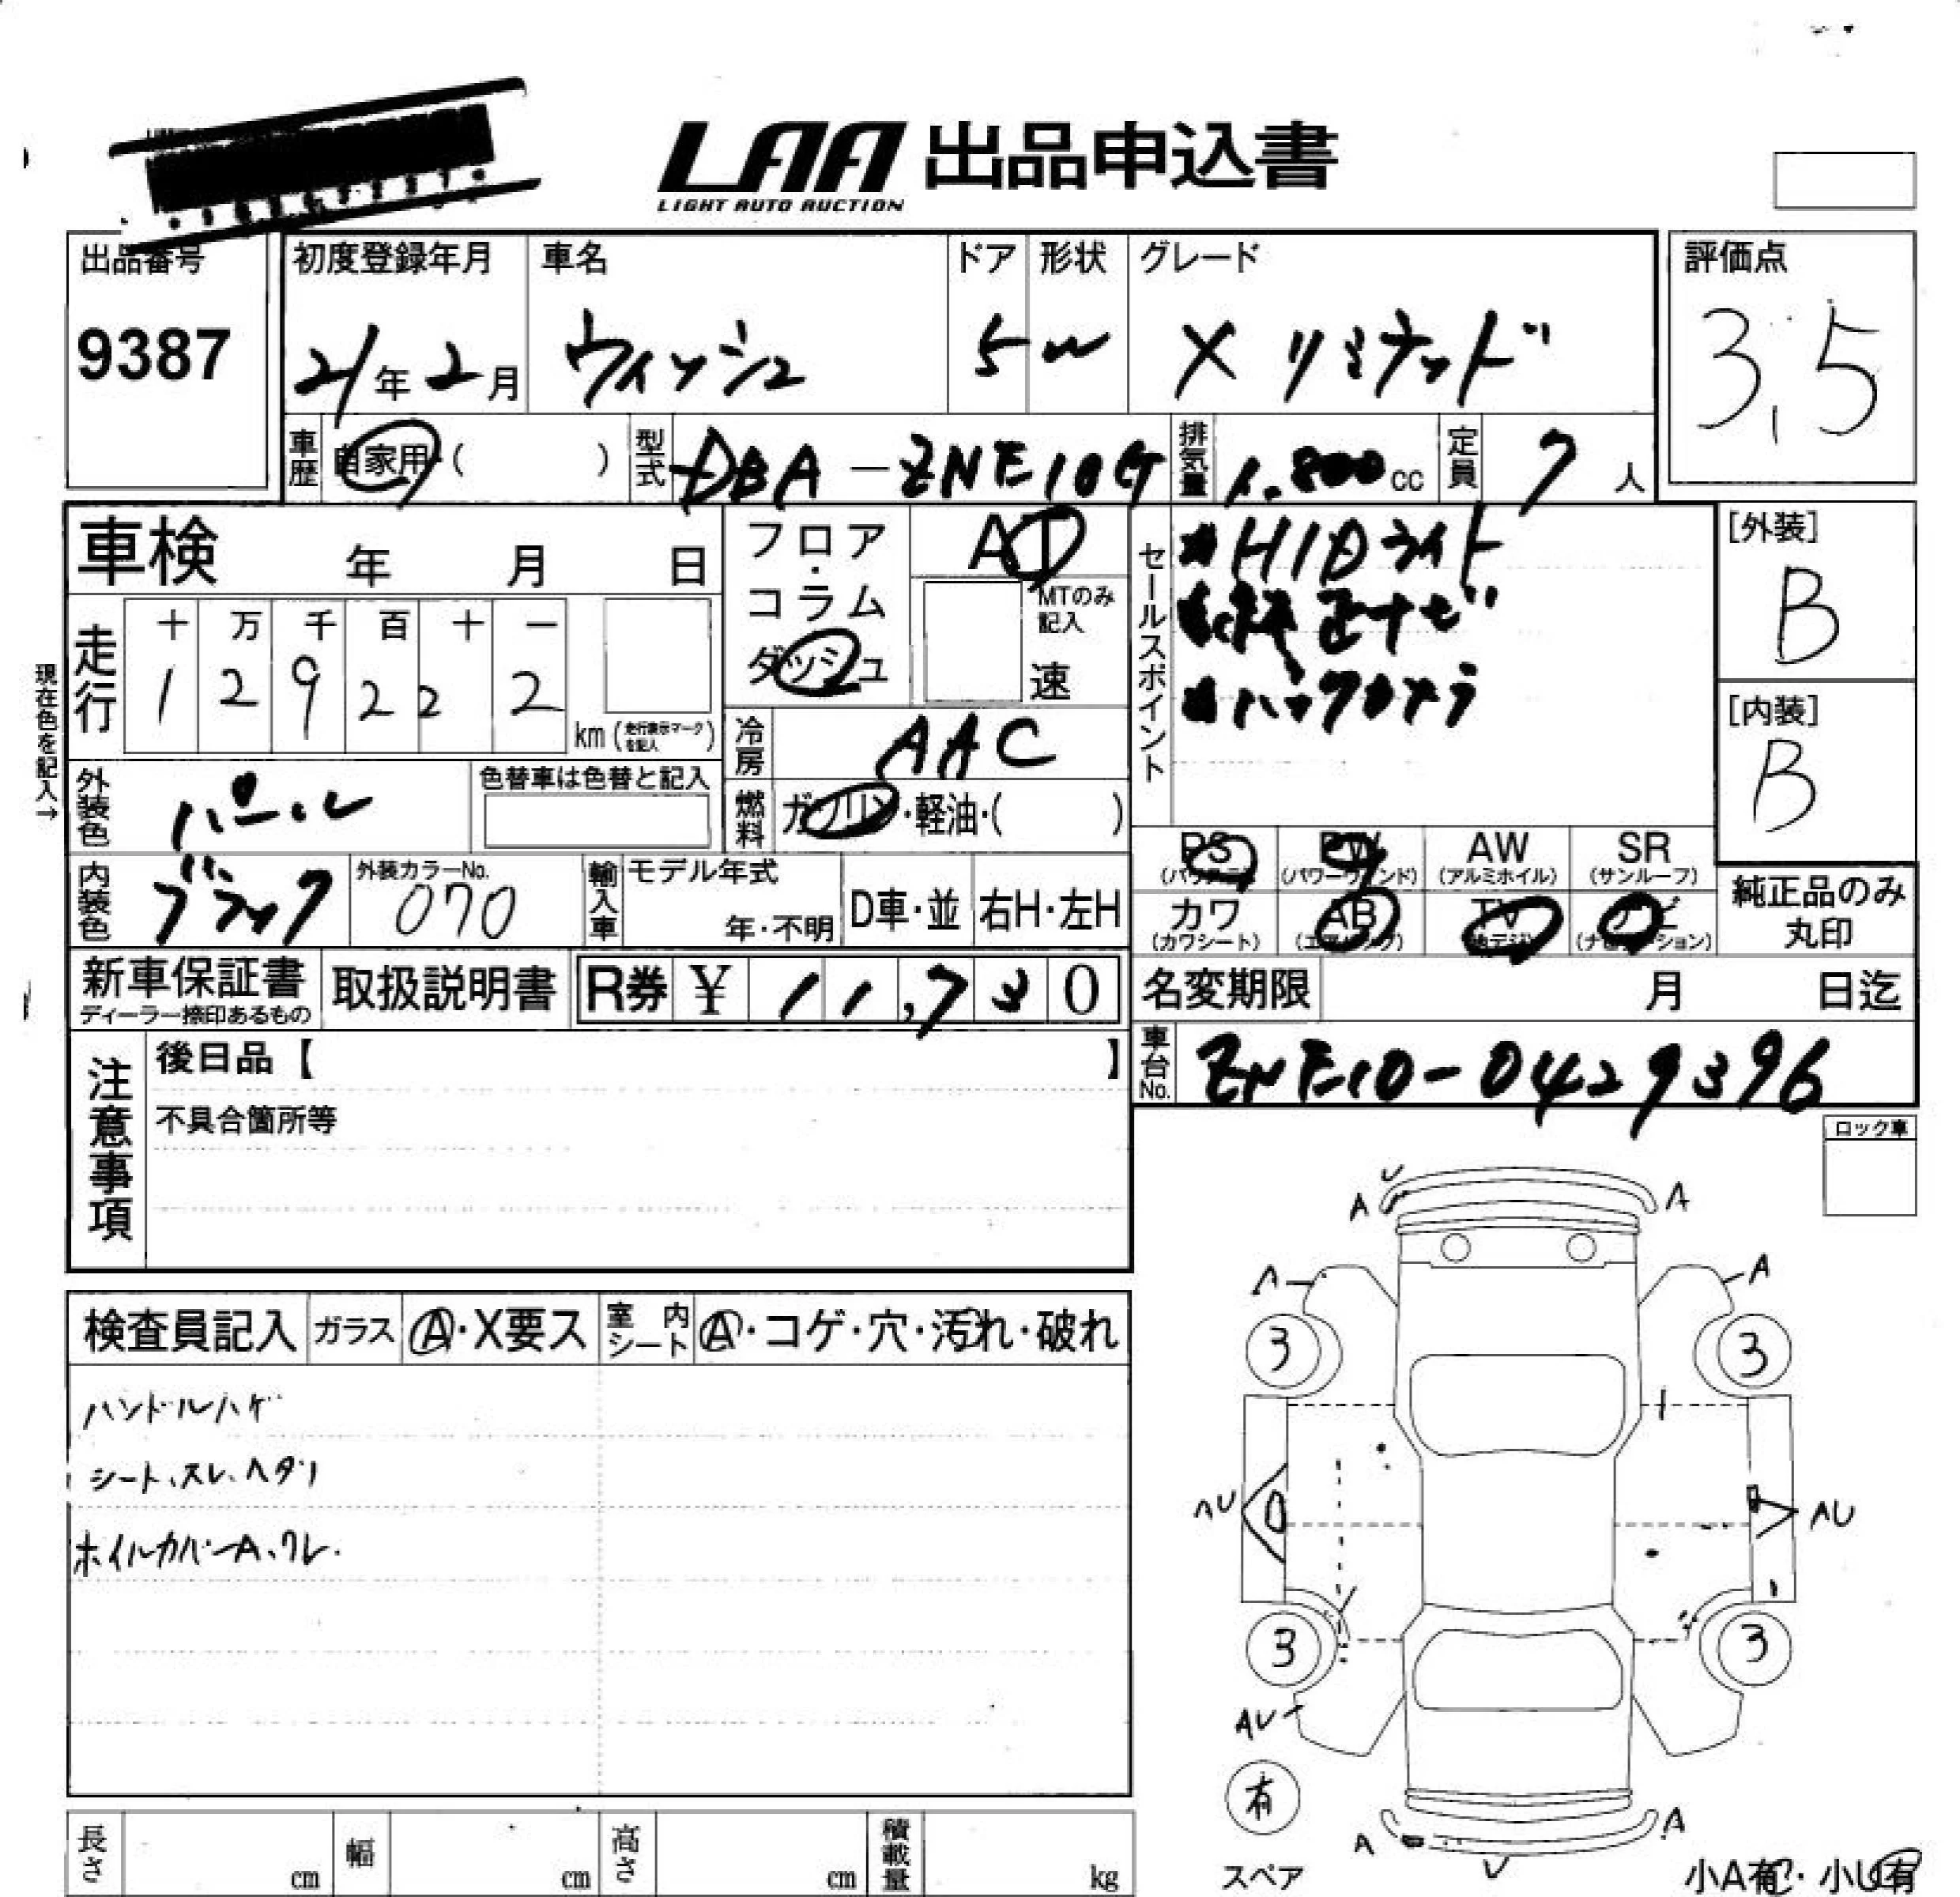 LAA 出品申込書
LIGHT AUTO AUCTION
出品番号
9387
初度登録年月
21年2月
車名
ウィッシュ
ドア
5
形状
W
グレード
X リミテッド
評価点
3.5
車歴
自家用・( )
型式
DBA-ZNE10G
排気量
1.800cc
定員
7人
車検 年 月 日
現在色を記入→
走行
十 万 千 百 十 一
1 2 9 2 2 2
km(走行表示マークを記入)
フロア・コラム
ダッシュ
AT
MTのみ記入
速
冷房
AAC
燃料
ガソリン・軽油・( )
セールスポイント
HIDライト
純正ナビ
バックカメラ
[外装]
B
[内装]
B
外装色
パール
色替車は色替と記入
内装色
ブラック
外装カラーNo.
070
輸入車
モデル年式
年・不明
D車・並
右H・左H
PS
(パワステ)
PW
(パワーウィンド)
AW
(アルミホイル)
SR
(サンルーフ)
カワ
(カワシート)
AB
(エアバッグ)
TV
(地デジ)
ナビ
(ナビゲーション)
純正品のみ
丸印
新車保証書
ディーラー捺印あるもの
取扱説明書
R券 ¥ 11,730
名変期限 月 日迄
車台No.
ZNE10-0429396
注意事項
後日品【 】
不具合箇所等
ロック車
検査員記入
ガラス
A・X要ス
室内シート
A・コゲ・穴・汚れ・破れ
ハンドルハゲ
シート、スレ、ヘタリ
ホイルカバーA、ワレ.
A
A
A
A
3
3
AU
AU
3
3
AU
有
スペア
A
A
小A有・小U有
長さ cm
幅 cm
高さ cm
積載量 kg